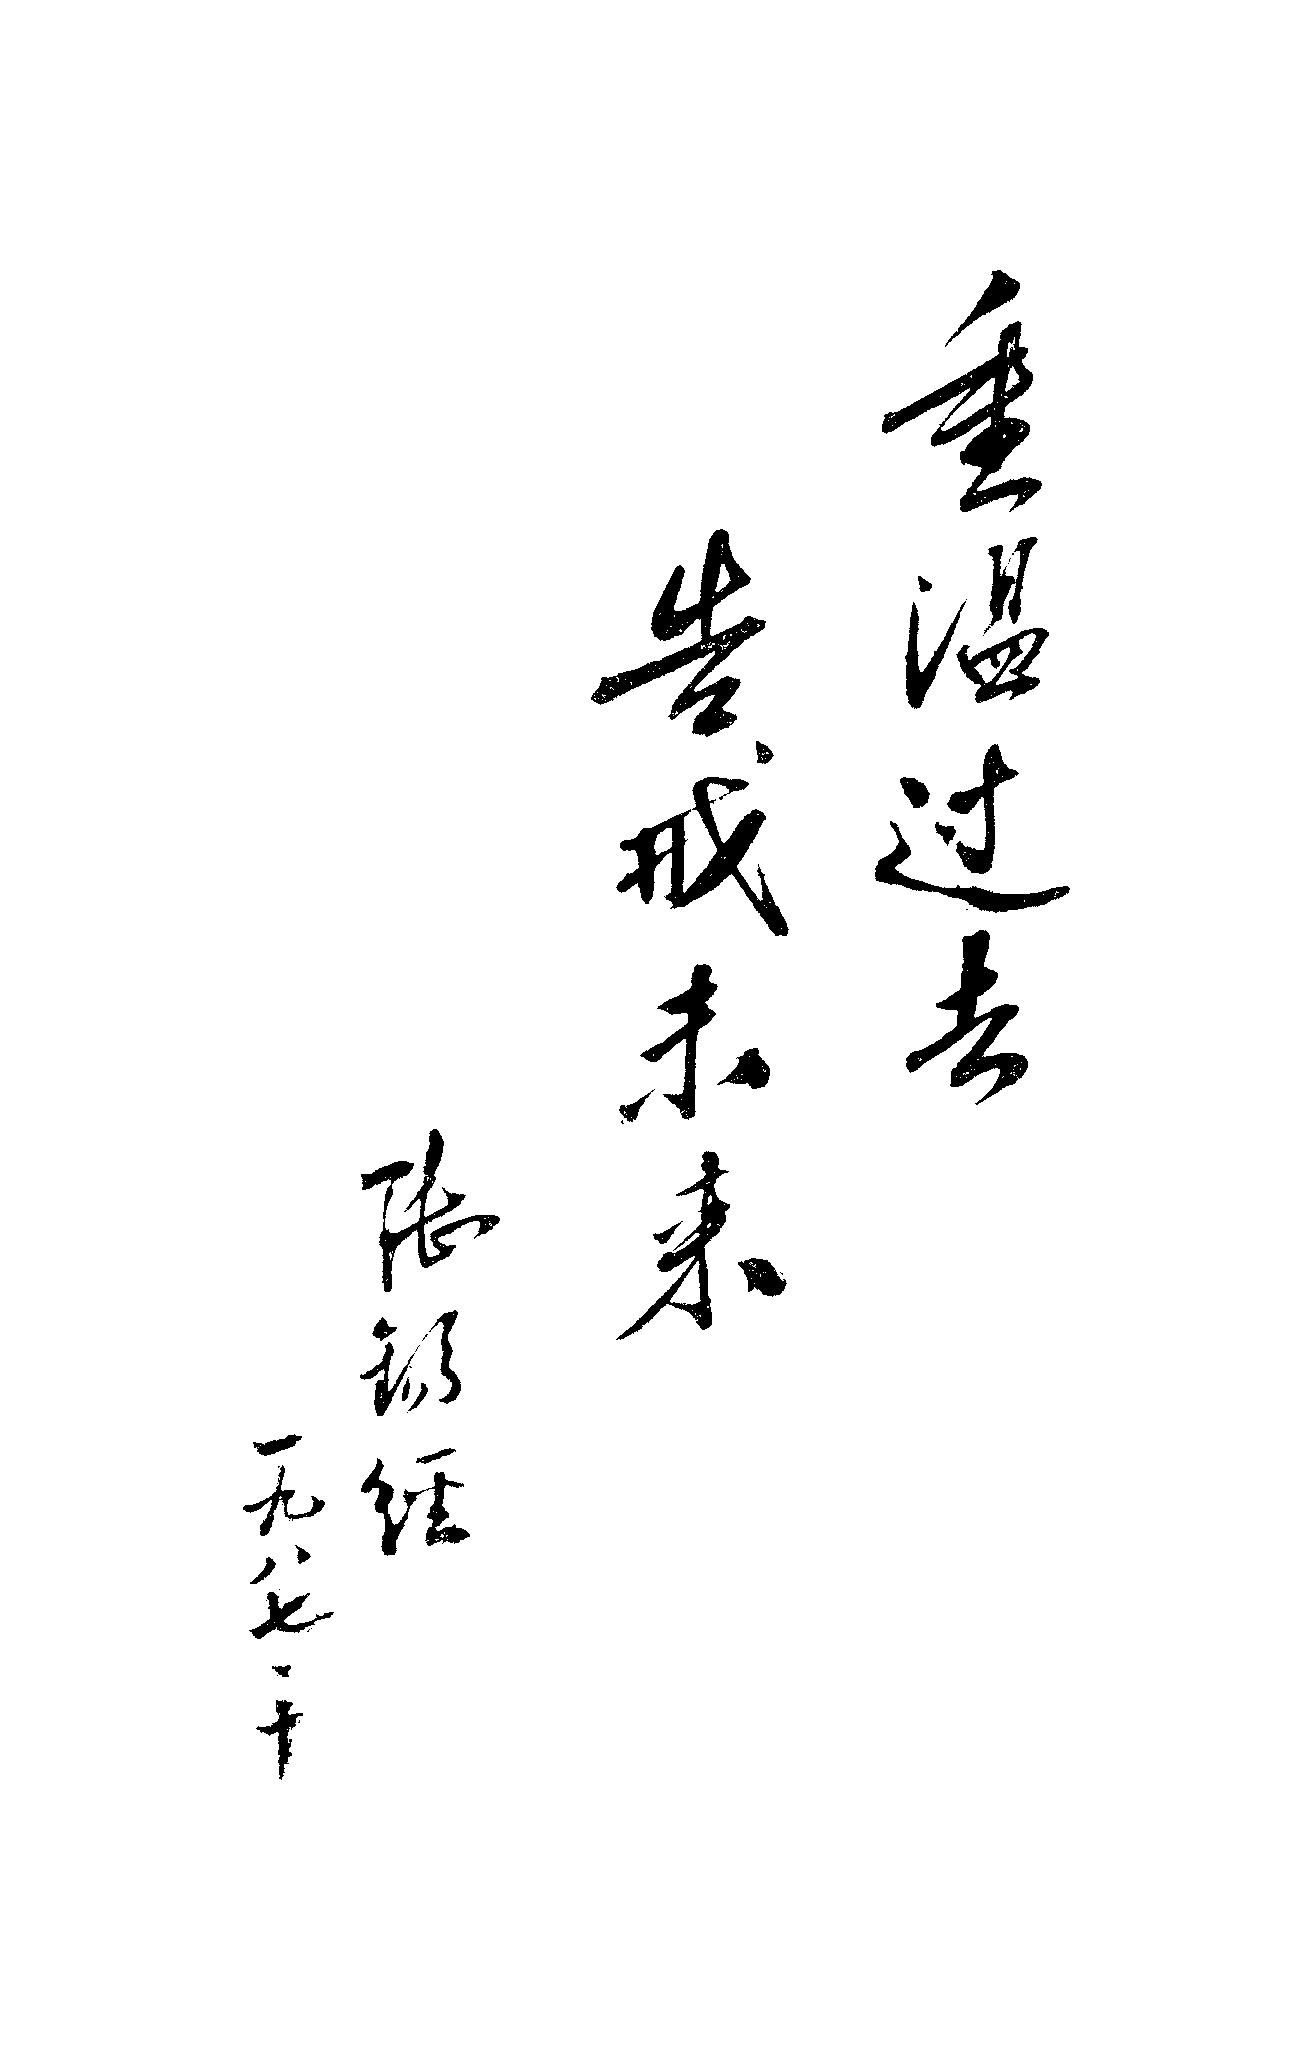 重温过去
告戒未来
张锡经
一九八七、十